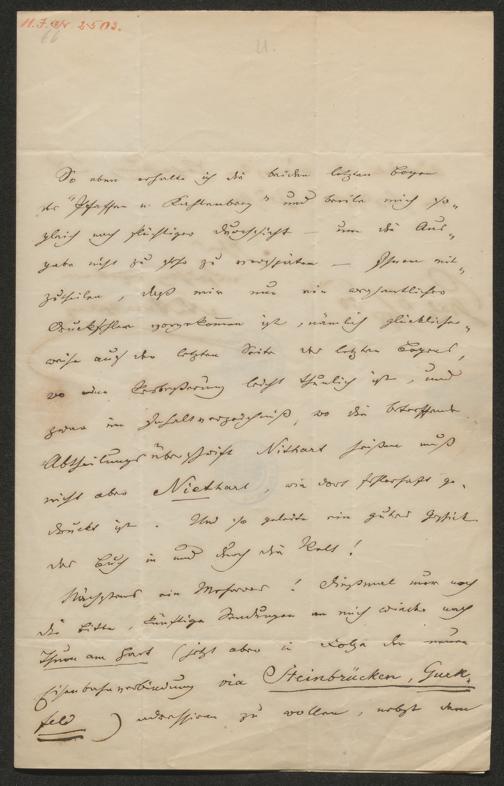 H.I.N. 2502.
66
U.
So eben erhalte ich die beiden letzten Bogen
des "Pfaffen v. Kahlenberg" und beeile mich so-
gleich nach flüchtiger Durchsicht – um die Aus-
gabe nicht zu sehr zu verspäten – Ihnen mit-
zutheilen, daß mir nur ein wesentlicher
Druckfehler vorgekommen ist, nämlich glücklicher-
weise auf der letzten Seite des letzten Bogens,
wo eine Verbeßerung leicht thunlich ist, und
zwar im Inhaltsverzeichniß, wo die betreffende
Abtheilungsüberschrift Nithart heißen muß
nicht aber Niethart, wie dort fehlerhaft ge-
druckt ist. Und so geleite ein gutes Geschick
das Buch in und durch die Welt!
Nächstens ein Mehreres! Dießmal nur noch
die Bitte, künftige Sendungen an mich wieder nach
Thurn am Hart (jetzt aber in Folge der neuen
Eisenbahnverbindung via Steinbrücken, Gurk-
feld) adressiren zu wollen, nebst dem